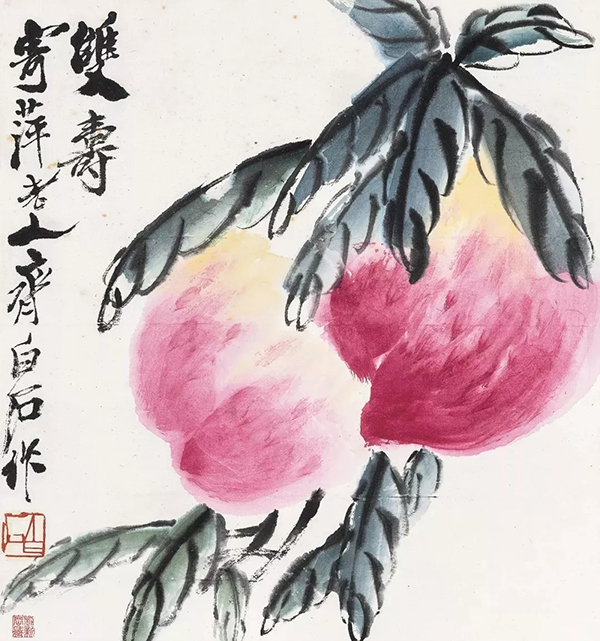 雙壽
寄萍老人齊白石作
白石